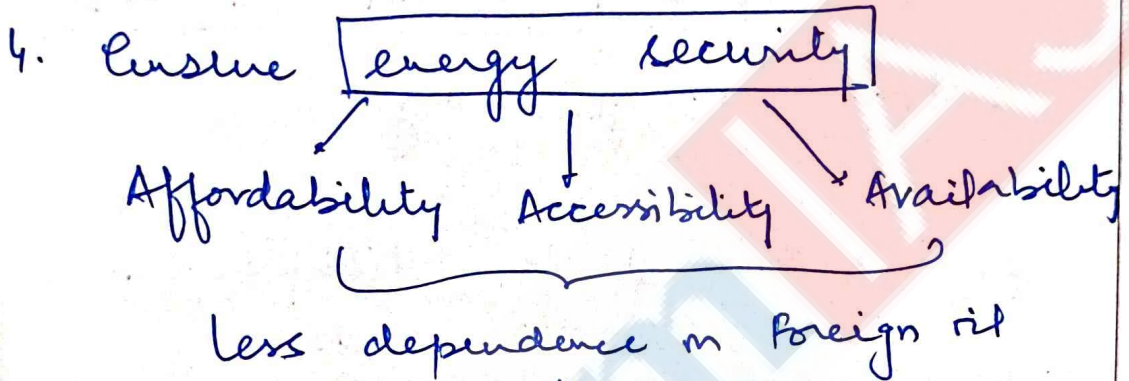 4. Ensure energy security
Affordability Accessibility Availability
less dependence on Foreign oil